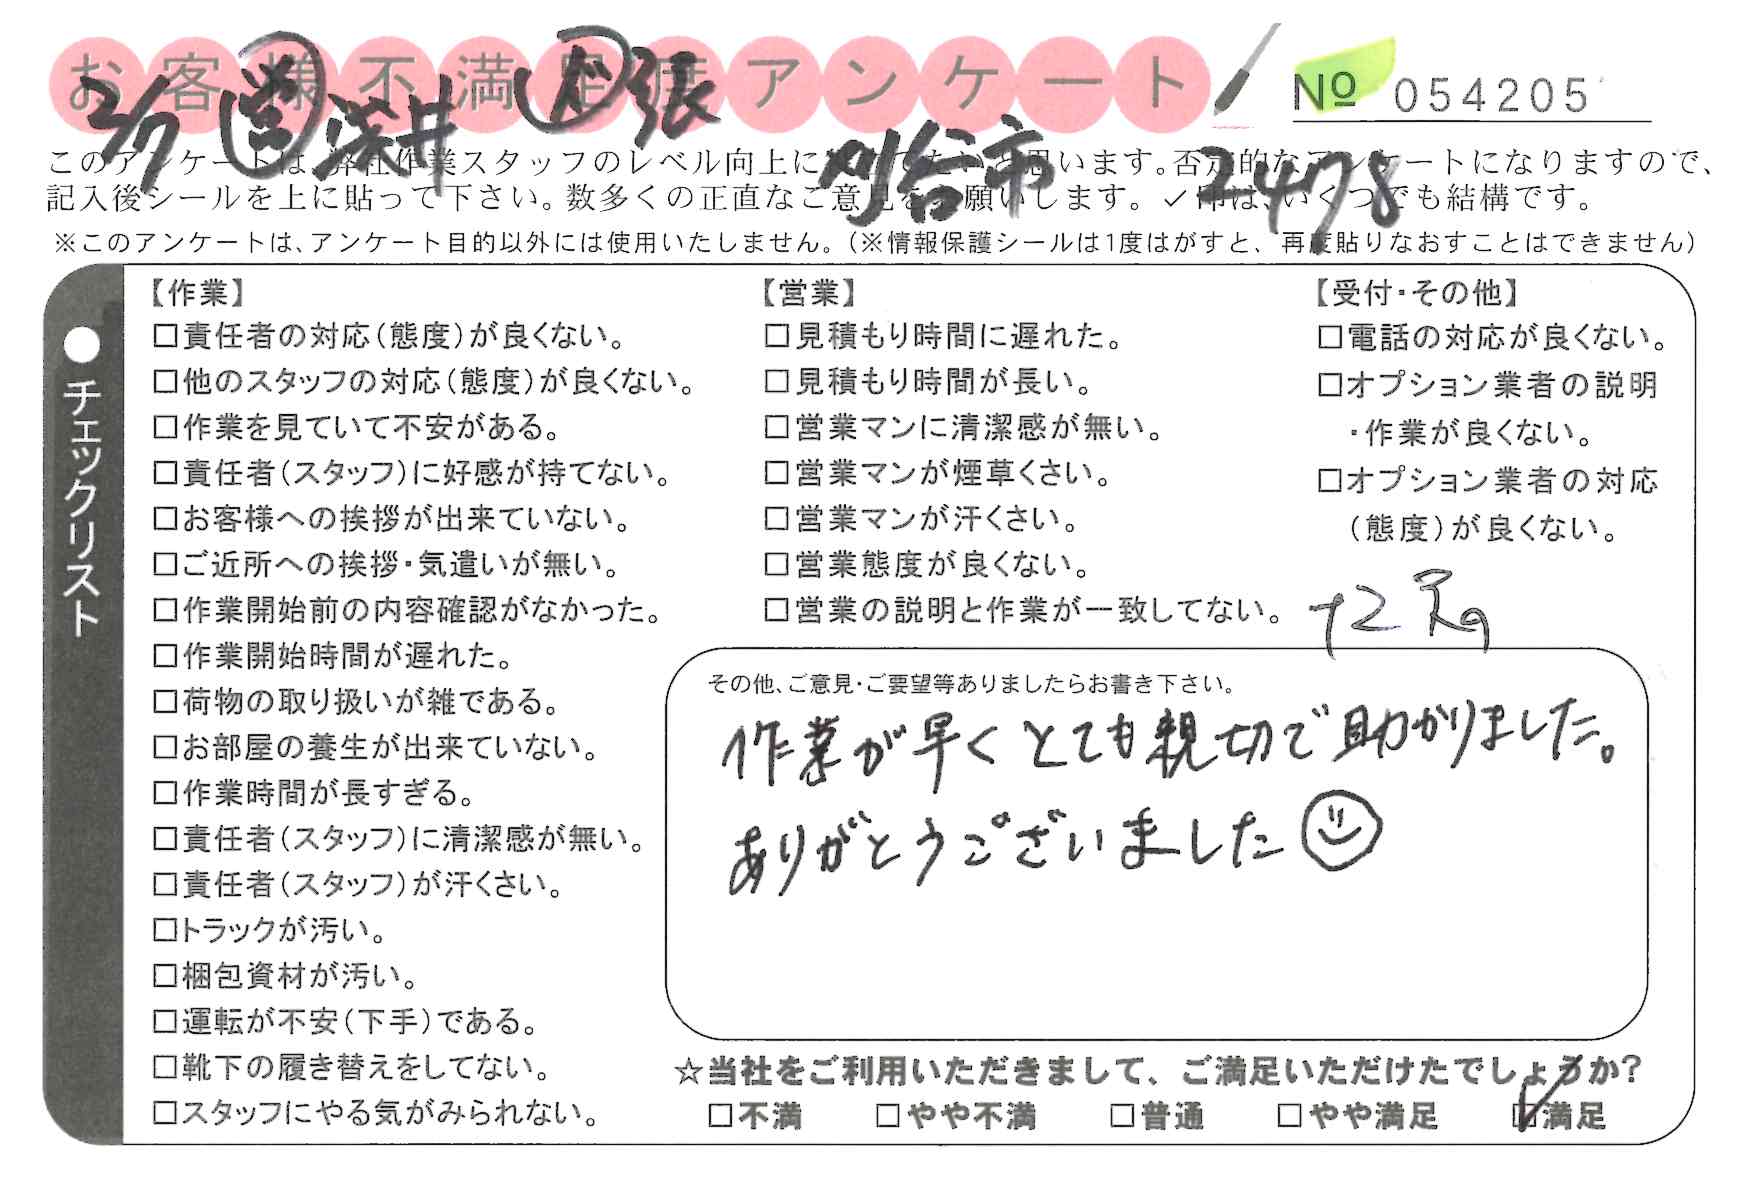 お客様不満足度アンケート
No 054205
2/7 営 浅井 作 張
刈谷市
このアンケートは、弊社作業スタッフのレベル向上に役立てたいと思います。否定的なアンケートになりますので、
記入後シールを上に貼って下さい。数多くの正直なご意見をお願いします。✓印は、いくつでも結構です。
※このアンケートは、アンケート目的以外には使用いたしません。(※情報保護シールは1度はがすと、再度貼りなおすことはできません)
●チェックリスト
【作業】
□責任者の対応(態度)が良くない。
□他のスタッフの対応(態度)が良くない。
□作業を見ていて不安がある。
□責任者(スタッフ)に好感が持てない。
□お客様への挨拶が出来ていない。
□ご近所への挨拶・気遣いが無い。
□作業開始前の内容確認がなかった。
□作業開始時間が遅れた。
□荷物の取り扱いが雑である。
□お部屋の養生が出来ていない。
□作業時間が長すぎる。
□責任者(スタッフ)に清潔感が無い。
□責任者(スタッフ)が汗くさい。
□トラックが汚い。
□梱包資材が汚い。
□運転が不安(下手)である。
□靴下の履き替えをしてない。
□スタッフにやる気がみられない。
【営業】
□見積もり時間に遅れた。
□見積もり時間が長い。
□営業マンに清潔感が無い。
□営業マンが煙草くさい。
□営業マンが汗くさい。
□営業態度が良くない。
□営業の説明と作業が一致してない。
【受付・その他】
□電話の対応が良くない。
□オプション業者の説明
・作業が良くない。
□オプション業者の対応
(態度)が良くない。
その他、ご意見・ご要望等ありましたらお書き下さい。
作業が早くとても親切で助かりました。
ありがとうございました
☆当社をご利用いただきまして、ご満足いただけたでしょうか?
□不満 □やや不満 □普通 □やや満足 ☑満足